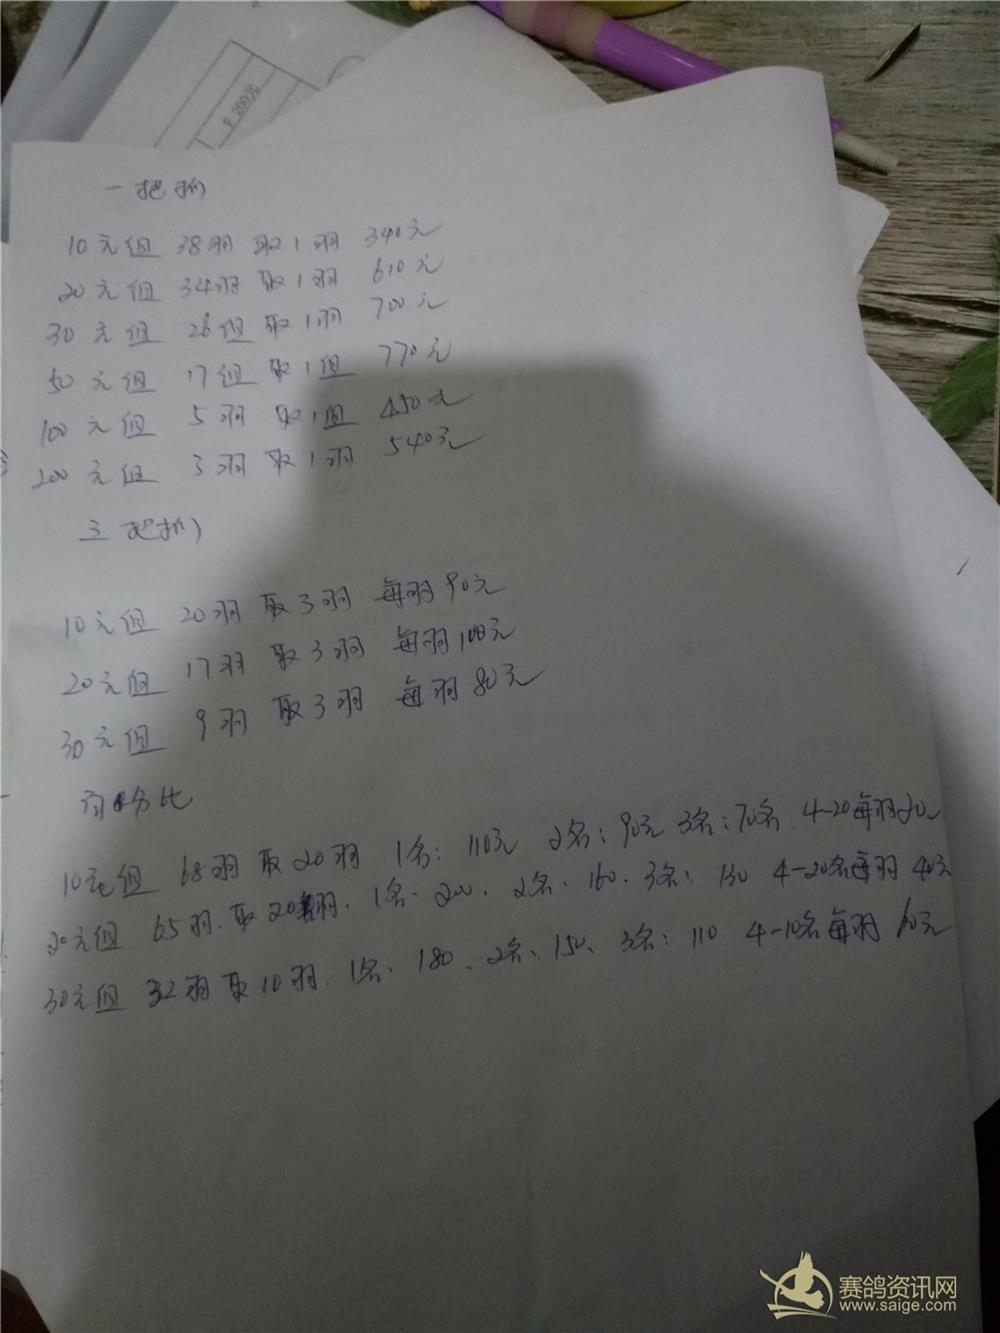 F 200元
一把抓
10元组 38羽 取1羽 340元
20元组 34羽 取1羽 610元
30元组 26组 取1羽 700元
50元组 17组 取1组 770元
100元组 5羽 取1组 450元
200元组 3羽 取1羽 540元
三把抓
10元组 20羽 取3羽 每羽90元
20元组 17羽 取3羽 每羽100元
30元组 9羽 取3羽 每羽80元
百分比
10元组 68羽 取20羽 1名:110元 2名:90元 3名:70名. 4-20每羽20元
20元组 65羽.取20羽. 1名.200. 2名.160. 3名:130 4-20名每羽40元
30元组 32羽取10羽. 1名.180. 2名.150. 3名:110 4-10名每羽60元
赛鸽资讯网
www.saige.com